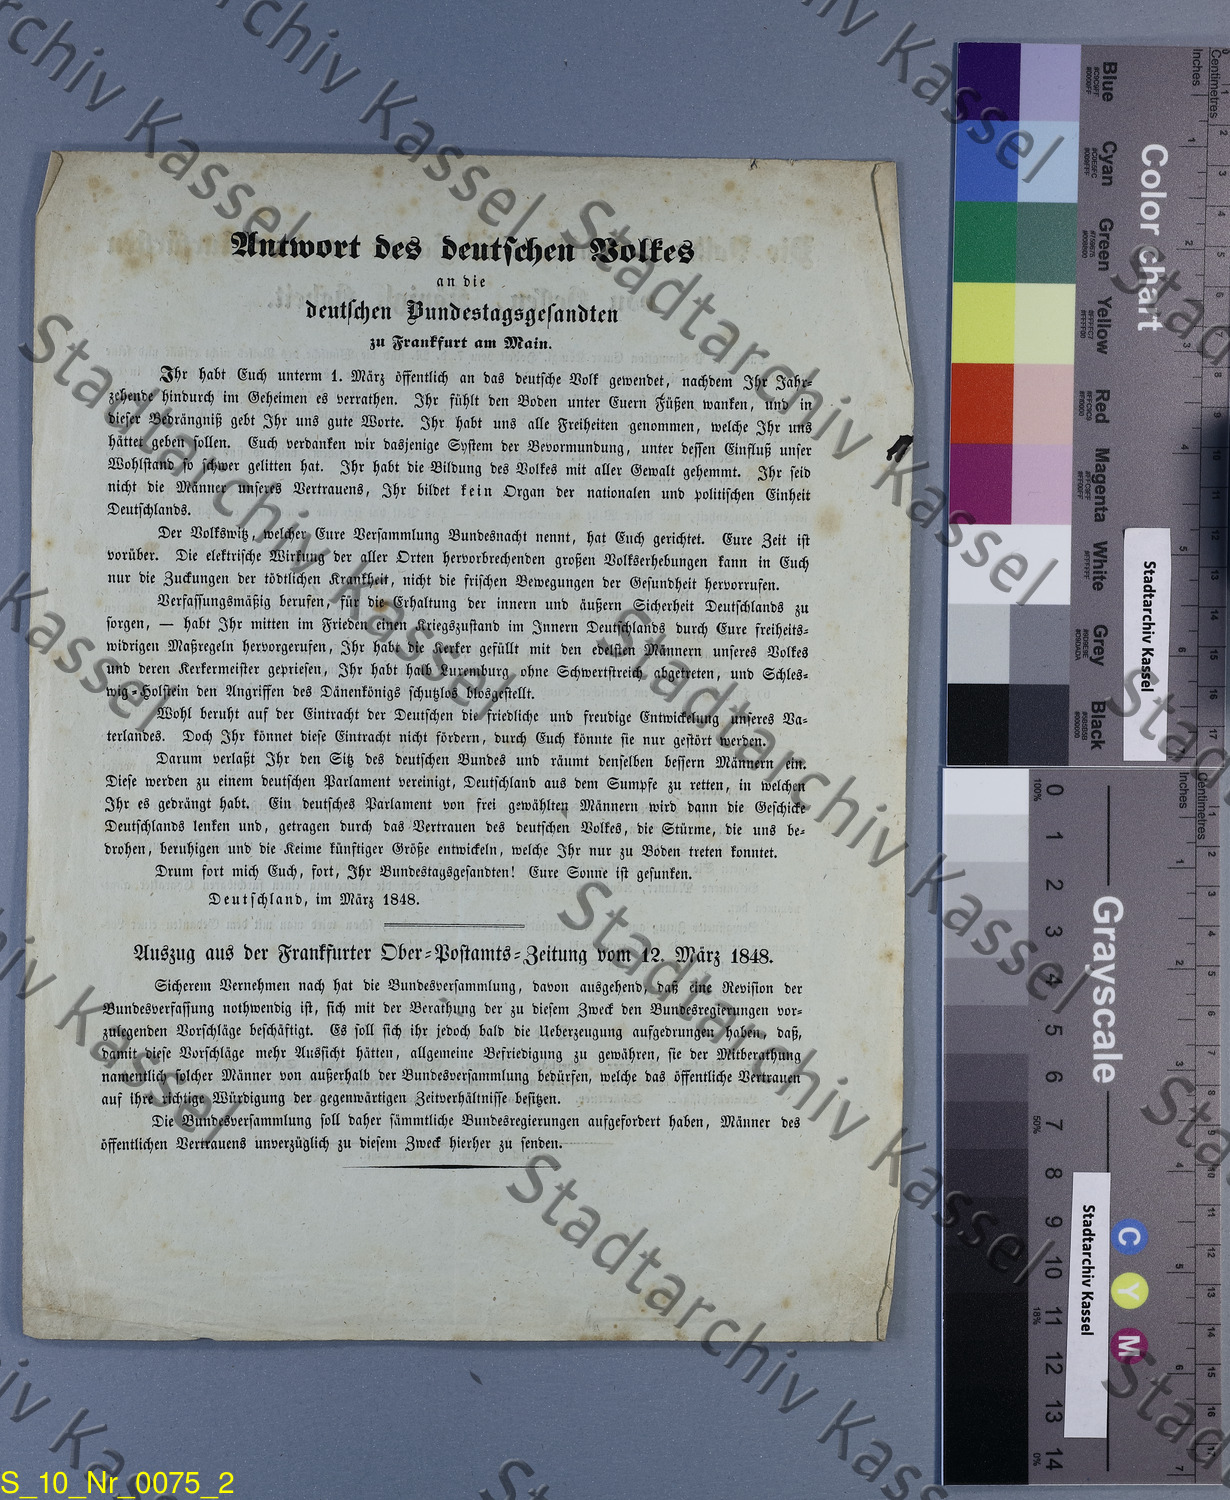 Antwort des deutschen Volkes
an die
deutschen Bundestagsgesandten
zu Frankfurt am Main.
Ihr habt Euch unterm 1. März öffentlich an das deutsche Volk gewendet, nachdem Ihr Jahr-
zehende hindurch im Geheimen es verrathen. Ihr fühlt den Boden unter Euern Füßen wanken, und in
dieser Bedrängniß gebt Ihr uns gute Worte. Ihr habt uns alle Freiheiten genommen, welche Ihr uns
hättet geben sollen. Euch verdanken wir dasjenige System der Bevormundung, unter dessen Einfluß unser
Wohlstand so schwer gelitten hat. Ihr habt die Bildung des Volkes mit aller Gewalt gehemmt. Ihr seid
nicht die Männer unseres Vertrauens, Ihr bildet kein Organ der nationalen und politischen Einheit
Deutschlands.
Der Volkswitz, welcher Eure Versammlung Bundesnacht nennt, hat Euch gerichtet. Eure Zeit ist
vorüber. Die elektrische Wirkung der aller Orten hervorbrechenden großen Volkserhebungen kann in Euch
nur die Zuckungen der tödtlichen Krankheit, nicht die frischen Bewegungen der Gesundheit hervorrufen.
Verfassungsmäßig berufen, für die Erhaltung der innern und äußern Sicherheit Deutschlands zu
sorgen, — habt Ihr mitten im Frieden einen Kriegszustand im Innern Deutschlands durch Eure freiheits-
widrigen Maßregeln hervorgerufen, Ihr habt die Kerker gefüllt mit den edelsten Männern unseres Volkes
und deren Kerkermeister gepriesen, Ihr habt halb Luxemburg ohne Schwertstreich abgetreten, und Schles-
wig-Holstein den Angriffen des Dänenkönigs schutzlos blosgestellt.
Wohl beruht auf der Eintracht der Deutschen die friedliche und freudige Entwickelung unseres Va-
terlandes. Doch Ihr könnet diese Eintracht nicht fördern, durch Euch könnte sie nur gestört werden.
Darum verlaßt Ihr den Sitz des deutschen Bundes und räumt denselben bessern Männern ein.
Diese werden zu einem deutschen Parlament vereinigt, Deutschland aus dem Sumpfe zu retten, in welchen
Ihr es gedrängt habt. Ein deutsches Parlament von frei gewählten Männern wird dann die Geschicke
Deutschlands lenken und, getragen durch das Vertrauen des deutschen Volkes, die Stürme, die uns be-
drohen, beruhigen und die Keime künftiger Größe entwickeln, welche Ihr nur zu Boden treten konntet.
Drum fort mich Euch, fort, Ihr Bundestagsgesandten! Eure Sonne ist gesunken.
Deutschland, im März 1848.
Auszug aus der Frankfurter Ober-Postamts-Zeitung vom 12. März 1848.
Sicherem Vernehmen nach hat die Bundesversammlung, davon ausgehend, daß eine Revision der
Bundesverfassung nothwendig ist, sich mit der Berathung der zu diesem Zweck den Bundesregierungen vor-
zulegenden Vorschläge beschäftigt. Es soll sich ihr jedoch bald die Ueberzeugung aufgedrungen haben, daß,
damit diese Vorschläge mehr Aussicht hätten, allgemeine Befriedigung zu gewähren, sie der Mitberathung
namentlich solcher Männer von außerhalb der Bundesversammlung bedürfen, welche das öffentliche Vertrauen
auf ihre richtige Würdigung der gegenwärtigen Zeitverhältnisse besitzen.
Die Bundesversammlung soll daher sämmtliche Bundesregierungen aufgefordert haben, Männer des
öffentlichen Vertrauens unverzüglich zu diesem Zweck hierher zu senden.
Color chart
Blue
Cyan
Green
Yellow
Red
Magenta
White
Grey
Black
Inches
Centimetres
Stadtarchiv Kassel
Grayscale
0 1 2 3 4 5 6 7 8 9 10 11 12 13 14
100%
50%
18%
0%
C
Y
M
Inches
Centimetres
Stadtarchiv Kassel
S_10_Nr_0075_2